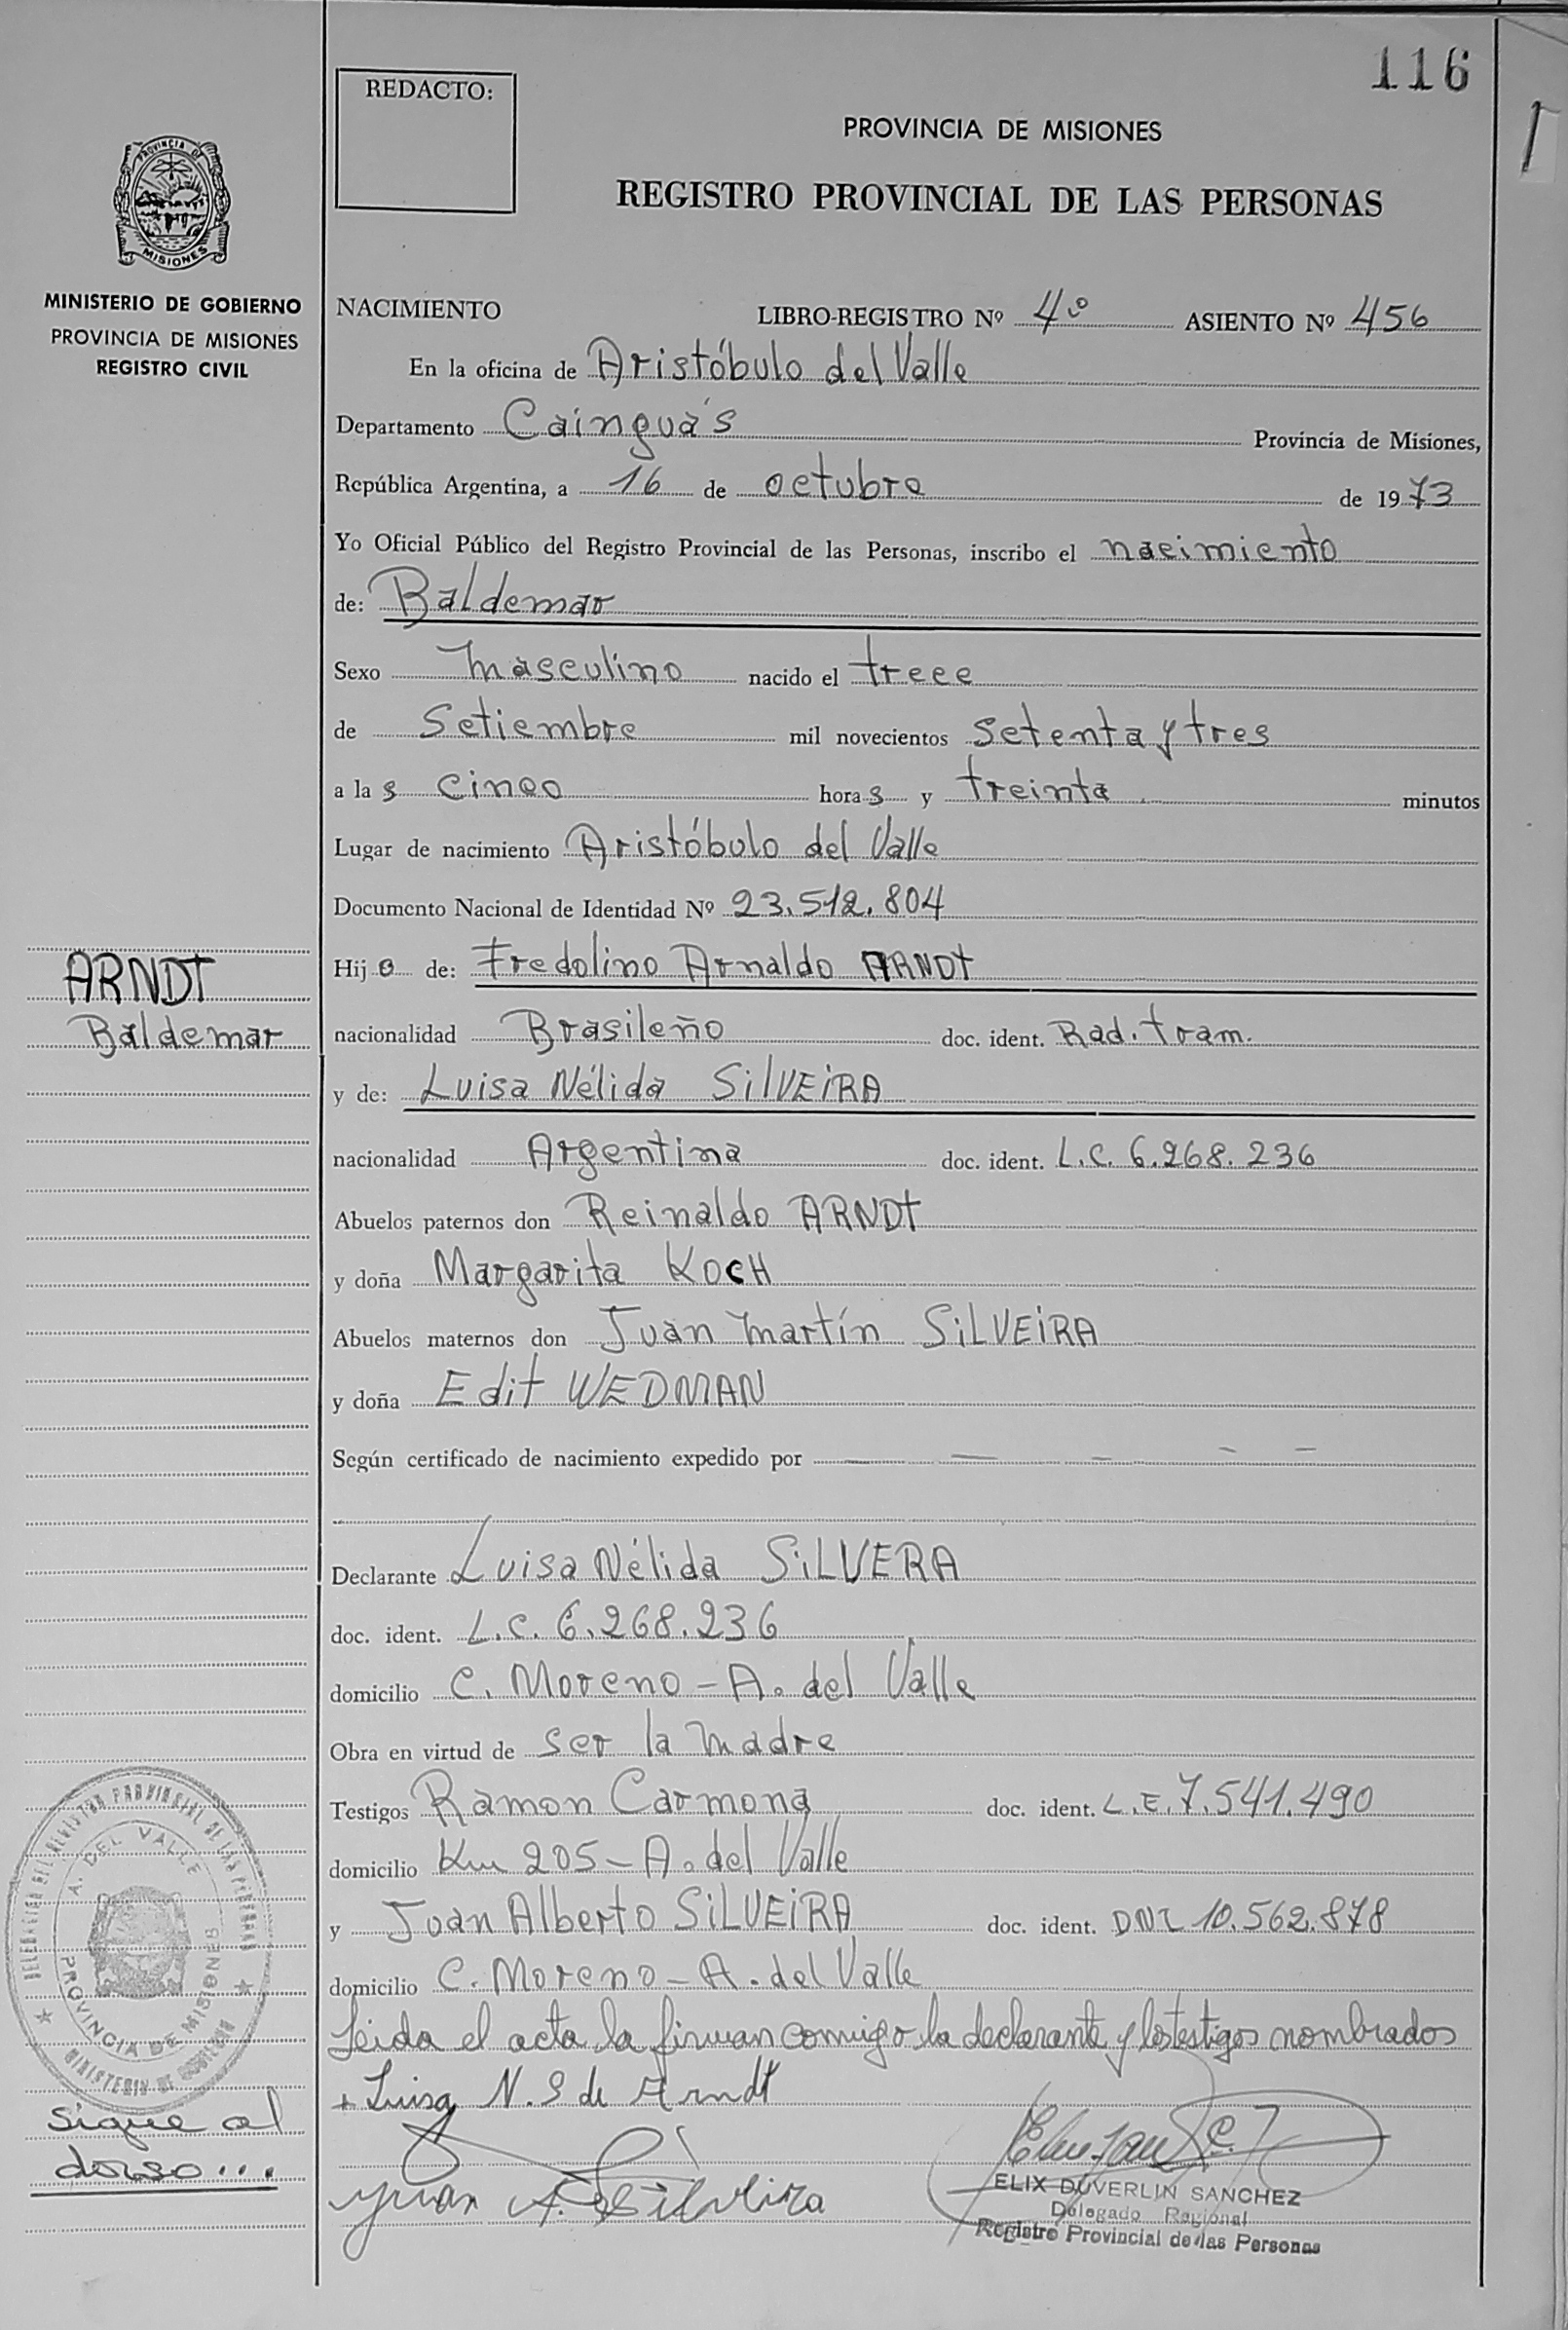 116
REDACTO:
PROVINCIA DE MISIONES
REGISTRO PROVINCIAL DE LAS PERSONAS
PROVINCIA DE
MISIONES
MINISTERIO DE GOBIERNO
PROVINCIA DE MISIONES
REGISTRO CIVIL
NACIMIENTO LIBRO-REGISTRO Nº 4º ASIENTO Nº 456
En la oficina de Aristóbulo del Valle
Departamento Cainguás Provincia de Misiones,
República Argentina, a 16 de octubre de 1973
Yo Oficial Público del Registro Provincial de las Personas, inscribo el nacimiento
de: Baldemar
Sexo Masculino nacido el trece
de Setiembre mil novecientos setenta y tres
a las cinco horas y treinta minutos
Lugar de nacimiento Aristóbulo del Valle
Documento Nacional de Identidad Nº 23.512.804
ARNDT
Baldemar
Hijo de: Fredolino Arnaldo ARNDT
nacionalidad Brasileño doc. ident. Rad. tram.
y de: Luisa Nélida SilVEiRA
nacionalidad Argentina doc. ident. L.C. 6.268.236
Abuelos paternos don Reinaldo ARNDT
y doña Margarita KOCH
Abuelos maternos don Juan Martín SiLVEiRA
y doña Edit WEDMAN
Según certificado de nacimiento expedido por — — — — —
Declarante Luisa Nélida SiLVERA
doc. ident. L.C. 6.268.236
domicilio C. Moreno - A. del Valle
Obra en virtud de ser la madre
Testigos Ramon Carmona doc. ident. L.E. 7.541.490
domicilio Km 205 - A. del Valle
y Juan Alberto SiLVEiRA doc. ident. DNI 10.562.878
domicilio C. Moreno - A. del Valle
Leida el acta la firman comigo la declarante y los testigos nombrados
+ Luisa N. S de Arndt
Juan A. Silveira
ELIX DUVERLIN SANCHEZ
Delegado Regional
Registro Provincial de las Personas
DELEGACION DEL REGISTRO PROVINCIAL DE LAS PERSONAS
A. DEL VALLE
PROVINCIA DE MISIONES
MINISTERIO DE GOBIERNO
Sigue al
dorso...